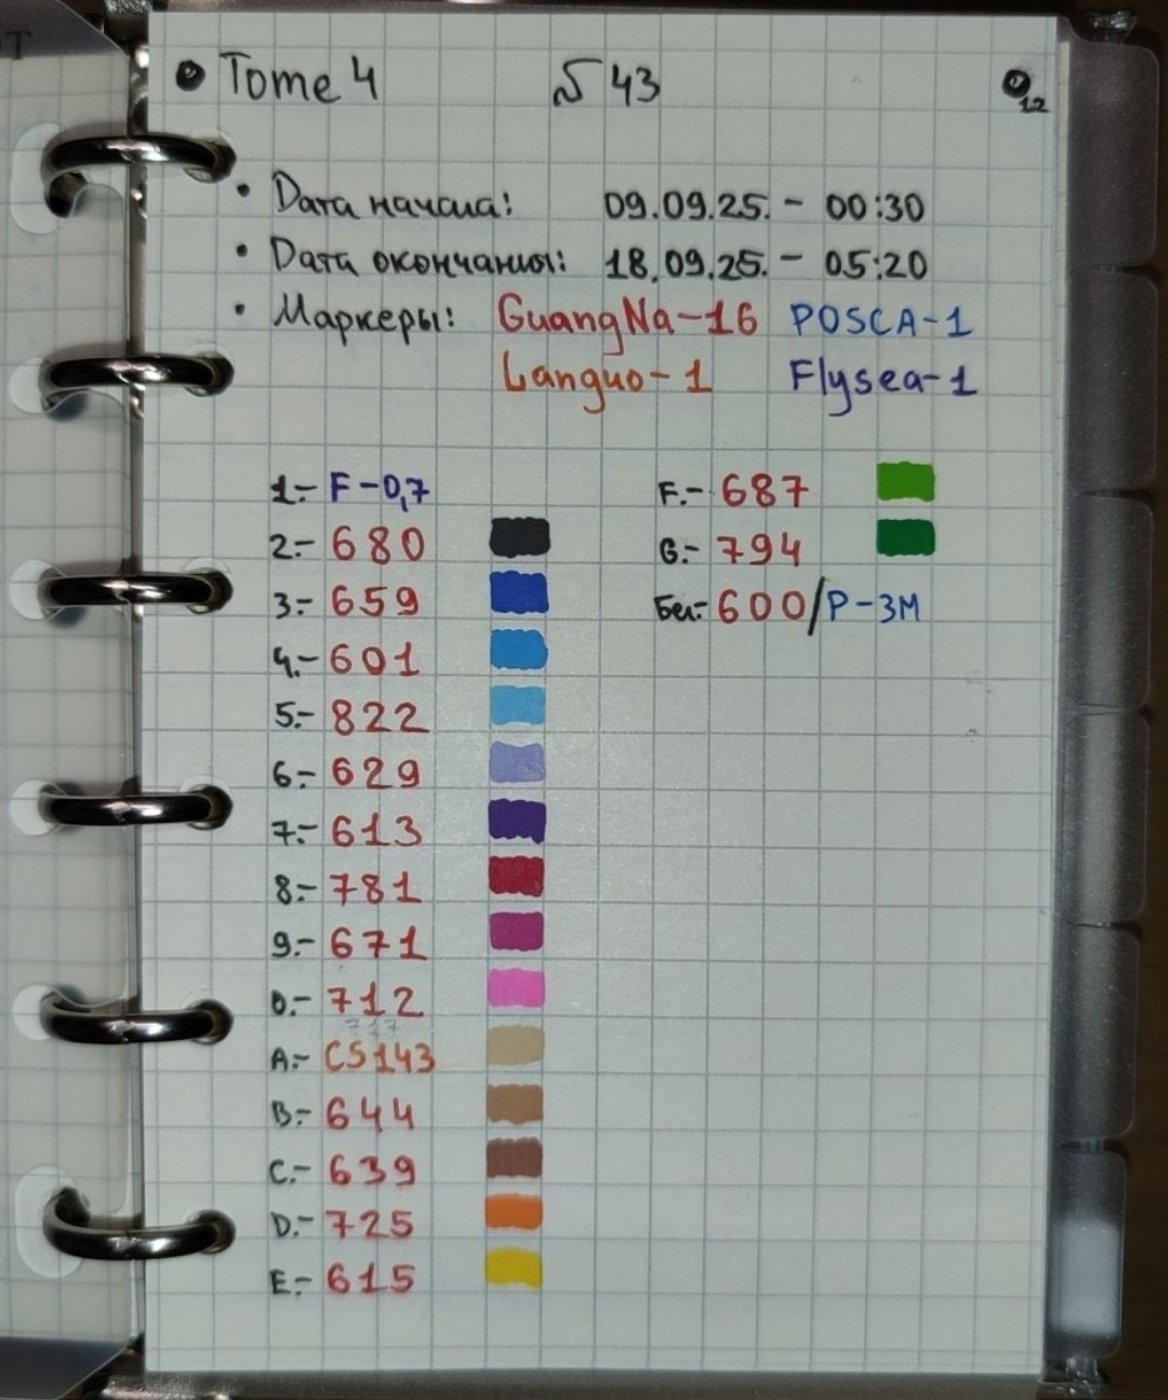 Tome 4 №43 12
• Дата начала: 09.09.25. - 00:30
• Дата окончания: 18.09.25. - 05:20
• Маркеры: GuangNa-16 POSCA-1
Languo-1 Flysea-1
1.- F-0,7
2.- 680
3.- 659
4.- 601
5.- 822
6.- 629
7.- 613
8.- 781
9.- 671
0.- 712
A.- CS143
B.- 644
C.- 639
D.- 725
E.- 615
F.- 687
G.- 794
Бел.- 600/P-3M